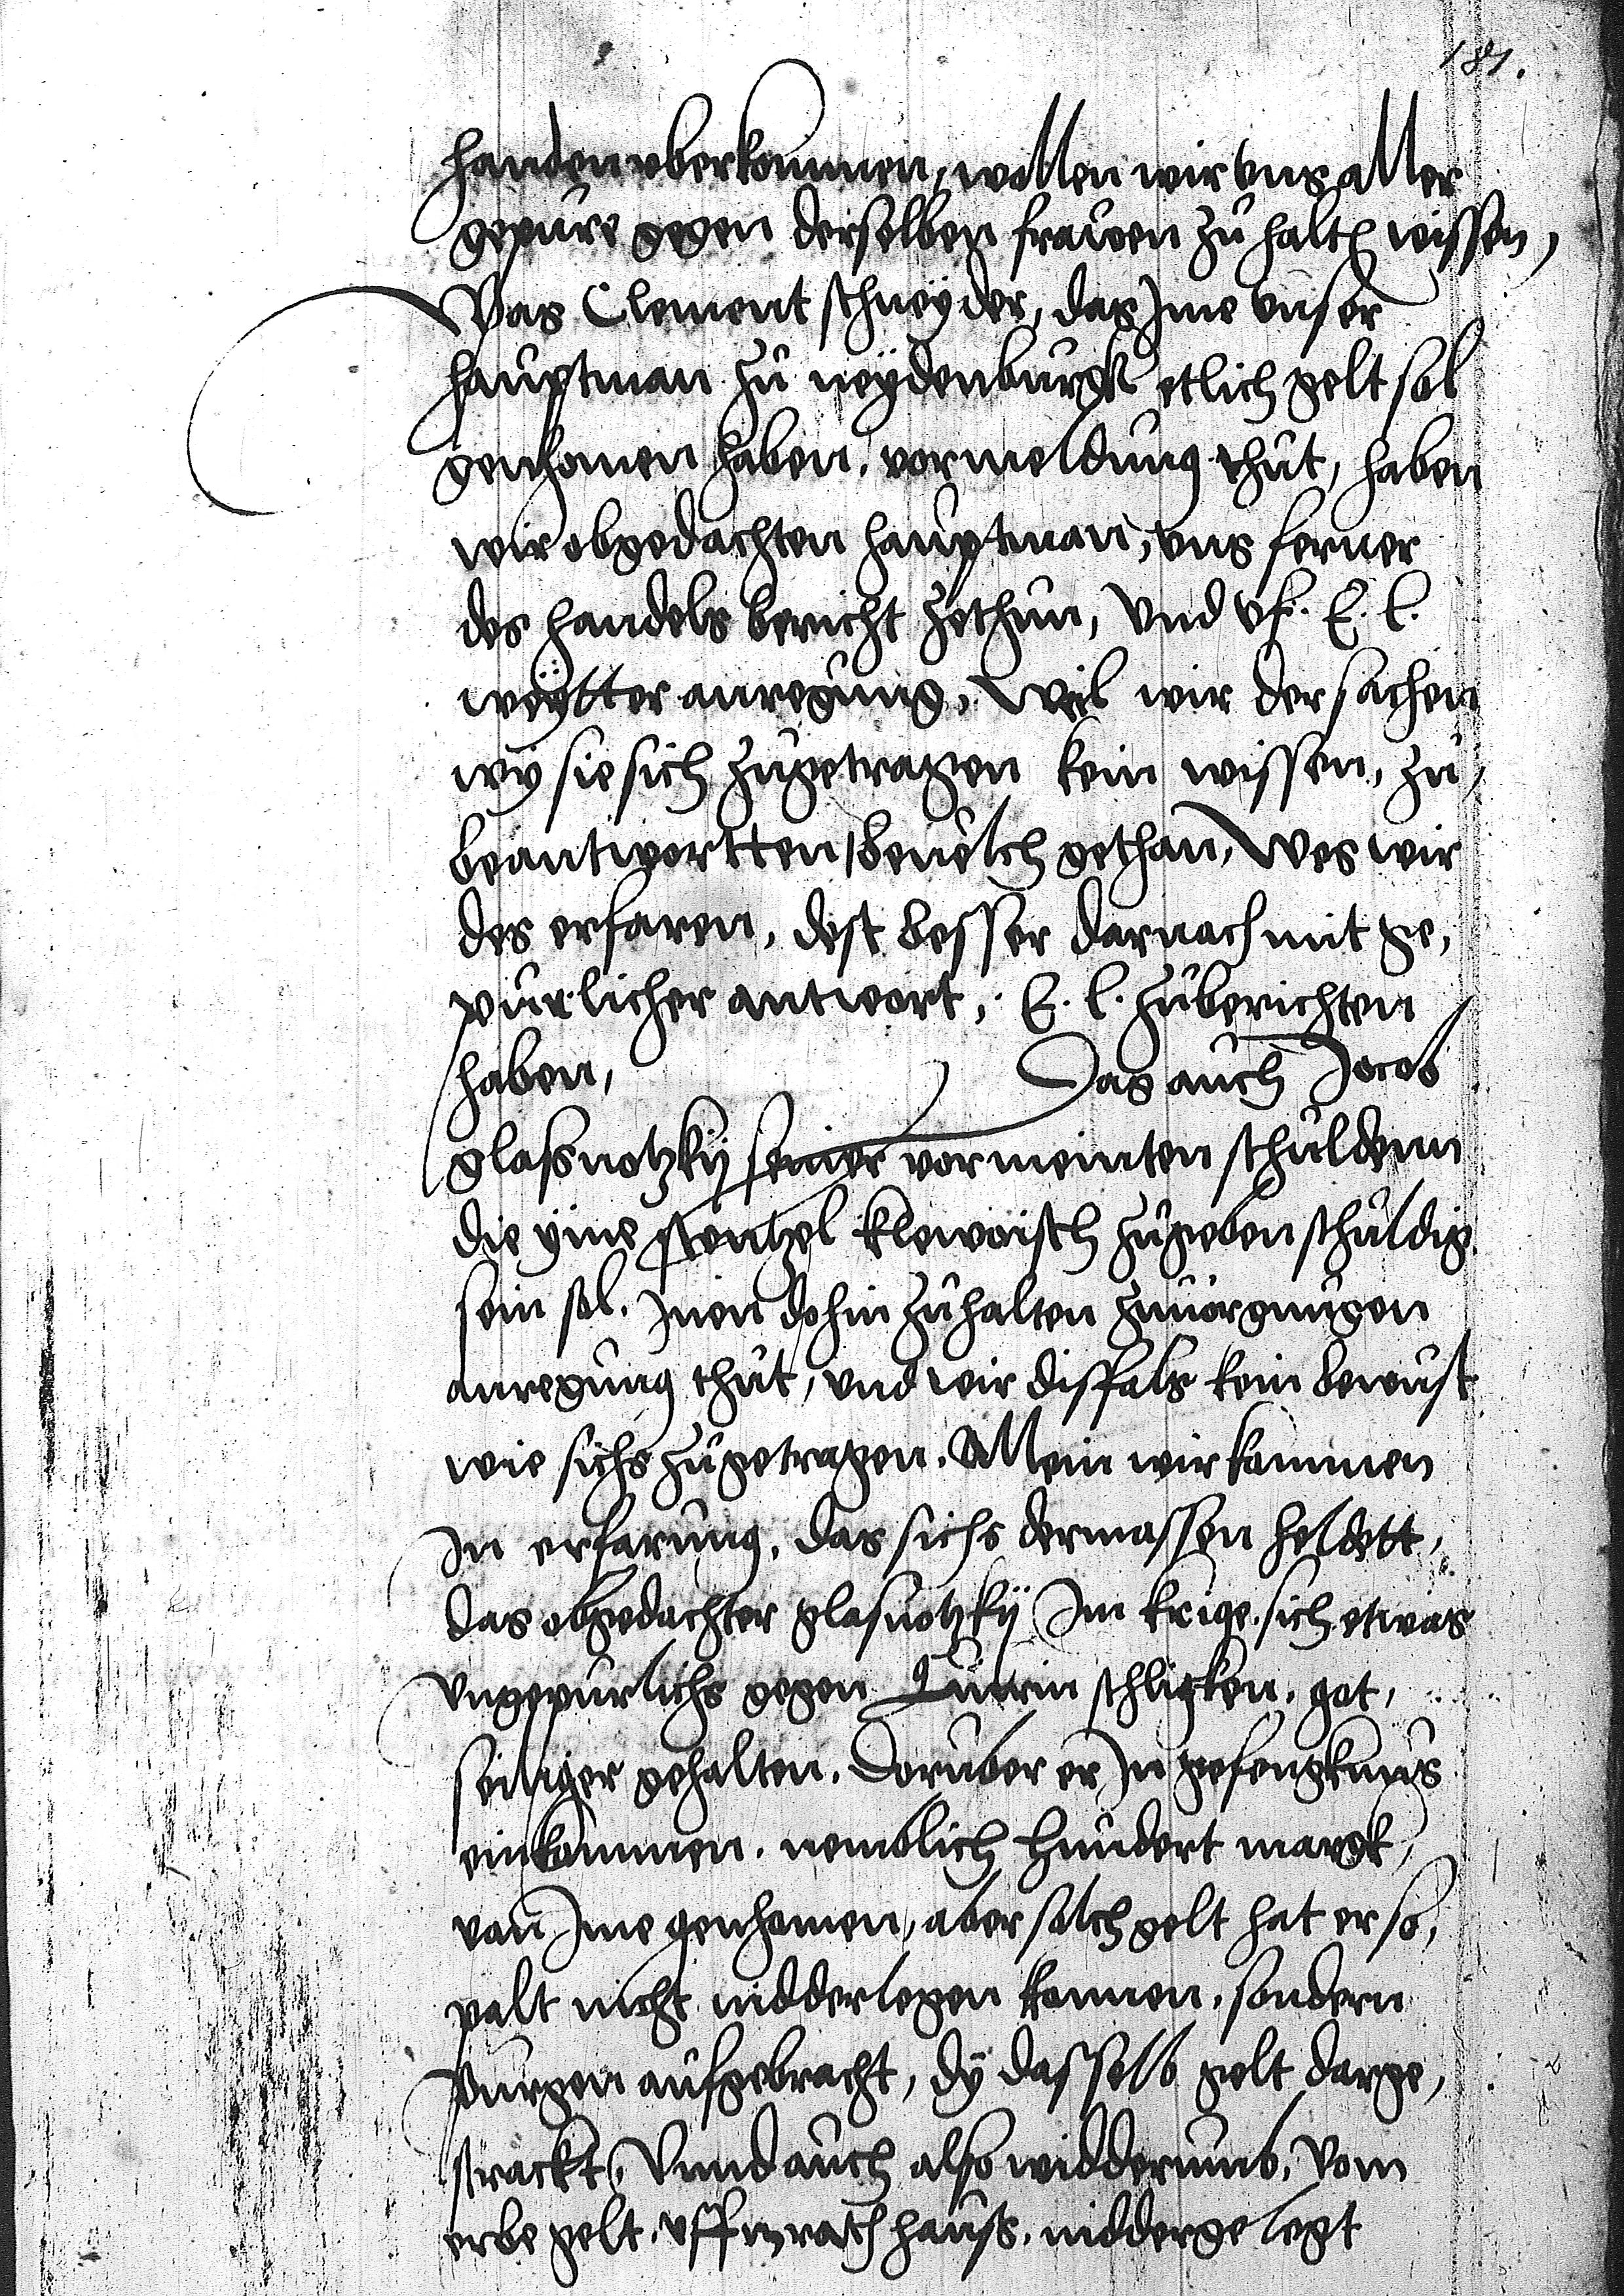 181.
handen uberkommen, wollen wir uns aller
gepure gegen derselben frawen zu halten wissen,
Was Clement schneyder, das Ime unser
hauptman zu neydenburgk etlich gelt sol
genhomen haben, vormeldung thut, haben
wir obgedachten hauptman, uns ferner
des handels bericht zethun, Und uf. E. l.
weytter anregung, Weil wir der sachen
wy sie sich zugetragen kein wissen, zu,
beantwortten bevelch gethan, Wes wir
des erfaren, dest besser darnach mit ge,
purlicher antwort, E. l. zuberichten
haben, Das auch Jocob
glassnotzky seiner vormeinten schuldenn
die yme stentzel klewoisch zugeben schuldig
sein sol. Inen dohin zuhalten zuvorgnugen
anregung thut, und wir dissfals kein bewust
wie sichs zugetragen. Allein wir kommen
In erfarung, das sichs dermassen heldett,
das obgedachter glasnotzky Im krige sich etwas
Ungepurlichs gegen Quirin schlicken, got,
seliger gehalten. Doruber er In gefengknus
einkommen, nemblich hundert margk,
van Ime genhomen, aber solch gelt hat er so,
palt nicht nidderlegen konnen, sondern
purgen aufgebracht, dy dasselb gelt darge,
strackt, Unnd auch also widderumb, Vom
erbe gelt, uffm rathhauss, niddergelegt